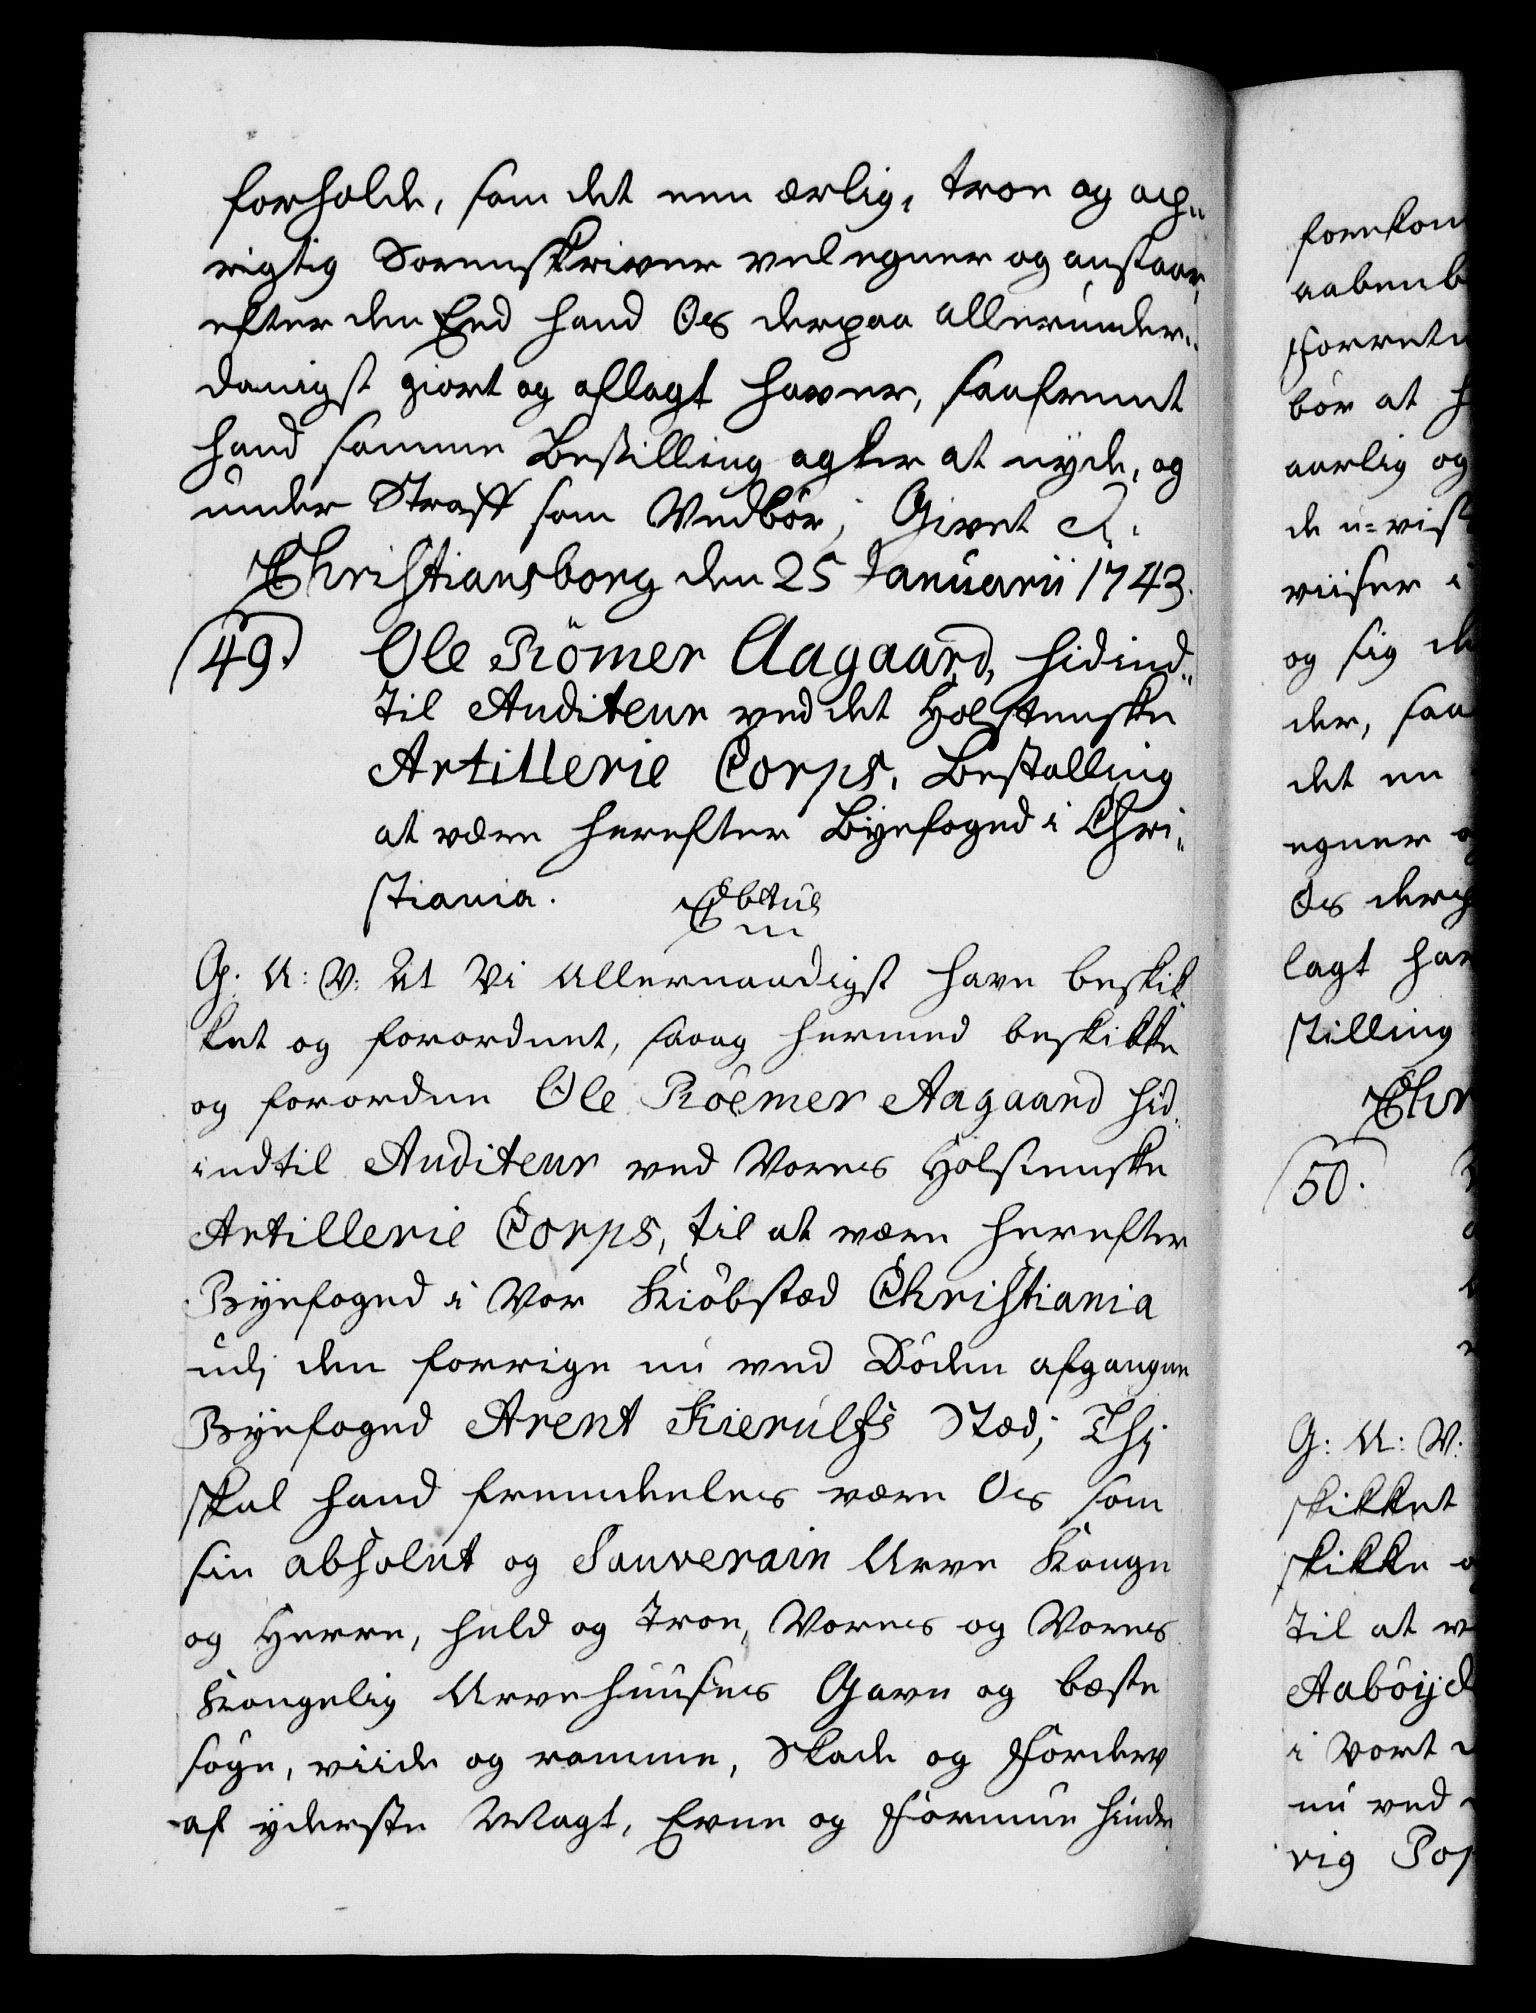 forholde, som det een ærlig, troe og op-
rigtig Sorenskriver vel egner og anstaar,
efter den Eed hand Os derpaa allerunder-
danigst giort og aflagt haver, saafremt
hand samme Bestilling agter at nyde, og
under Straff som Vedbør; Givet &.
Christiansborg den 25 Januarii 1743.
49. Ole Römer Aagaard, hidind-
til Auditeur ved det Holsteenske
Artillerie Corps, Bestalling
at være herefter Byefoged i Chri-
stiania.
G. A: V: At Vi Allernaadigst have beskik-
ket og forordnet, saa og hermed beskikke
og forordne Ole Röemer Aagaard hid-
indtil Auditeur ved Vores Holsteenske
Artillerie Corps, til at være herefter
Byefoged i Vor Kiöbstæd Christiania
udj den forrige nu ved Döden afgangne
Byefoged Arent Kierulfs Stæd; Thj
skal hand fremdeeles være Os som
sin absolut og Souverain Arve Konge
og Herre, huld og troe, Vores og Vores
Kongelig Arvehuuses Gavn og bæste
søge, viide og ramme, Skade og Forderv
af yderste Magt, Evne og Formue hindre
forekom
aabenb
Forretn
bör at h
aarlig og
de u-vist
viiser i
og sig de
der, saa
det en
egner o
Os derp
lagt hav
stilling
Chr
50.
G: A: V:
skikket
skikke o
til at v
Aaböyd
i Vort
nu ved
rig Pos